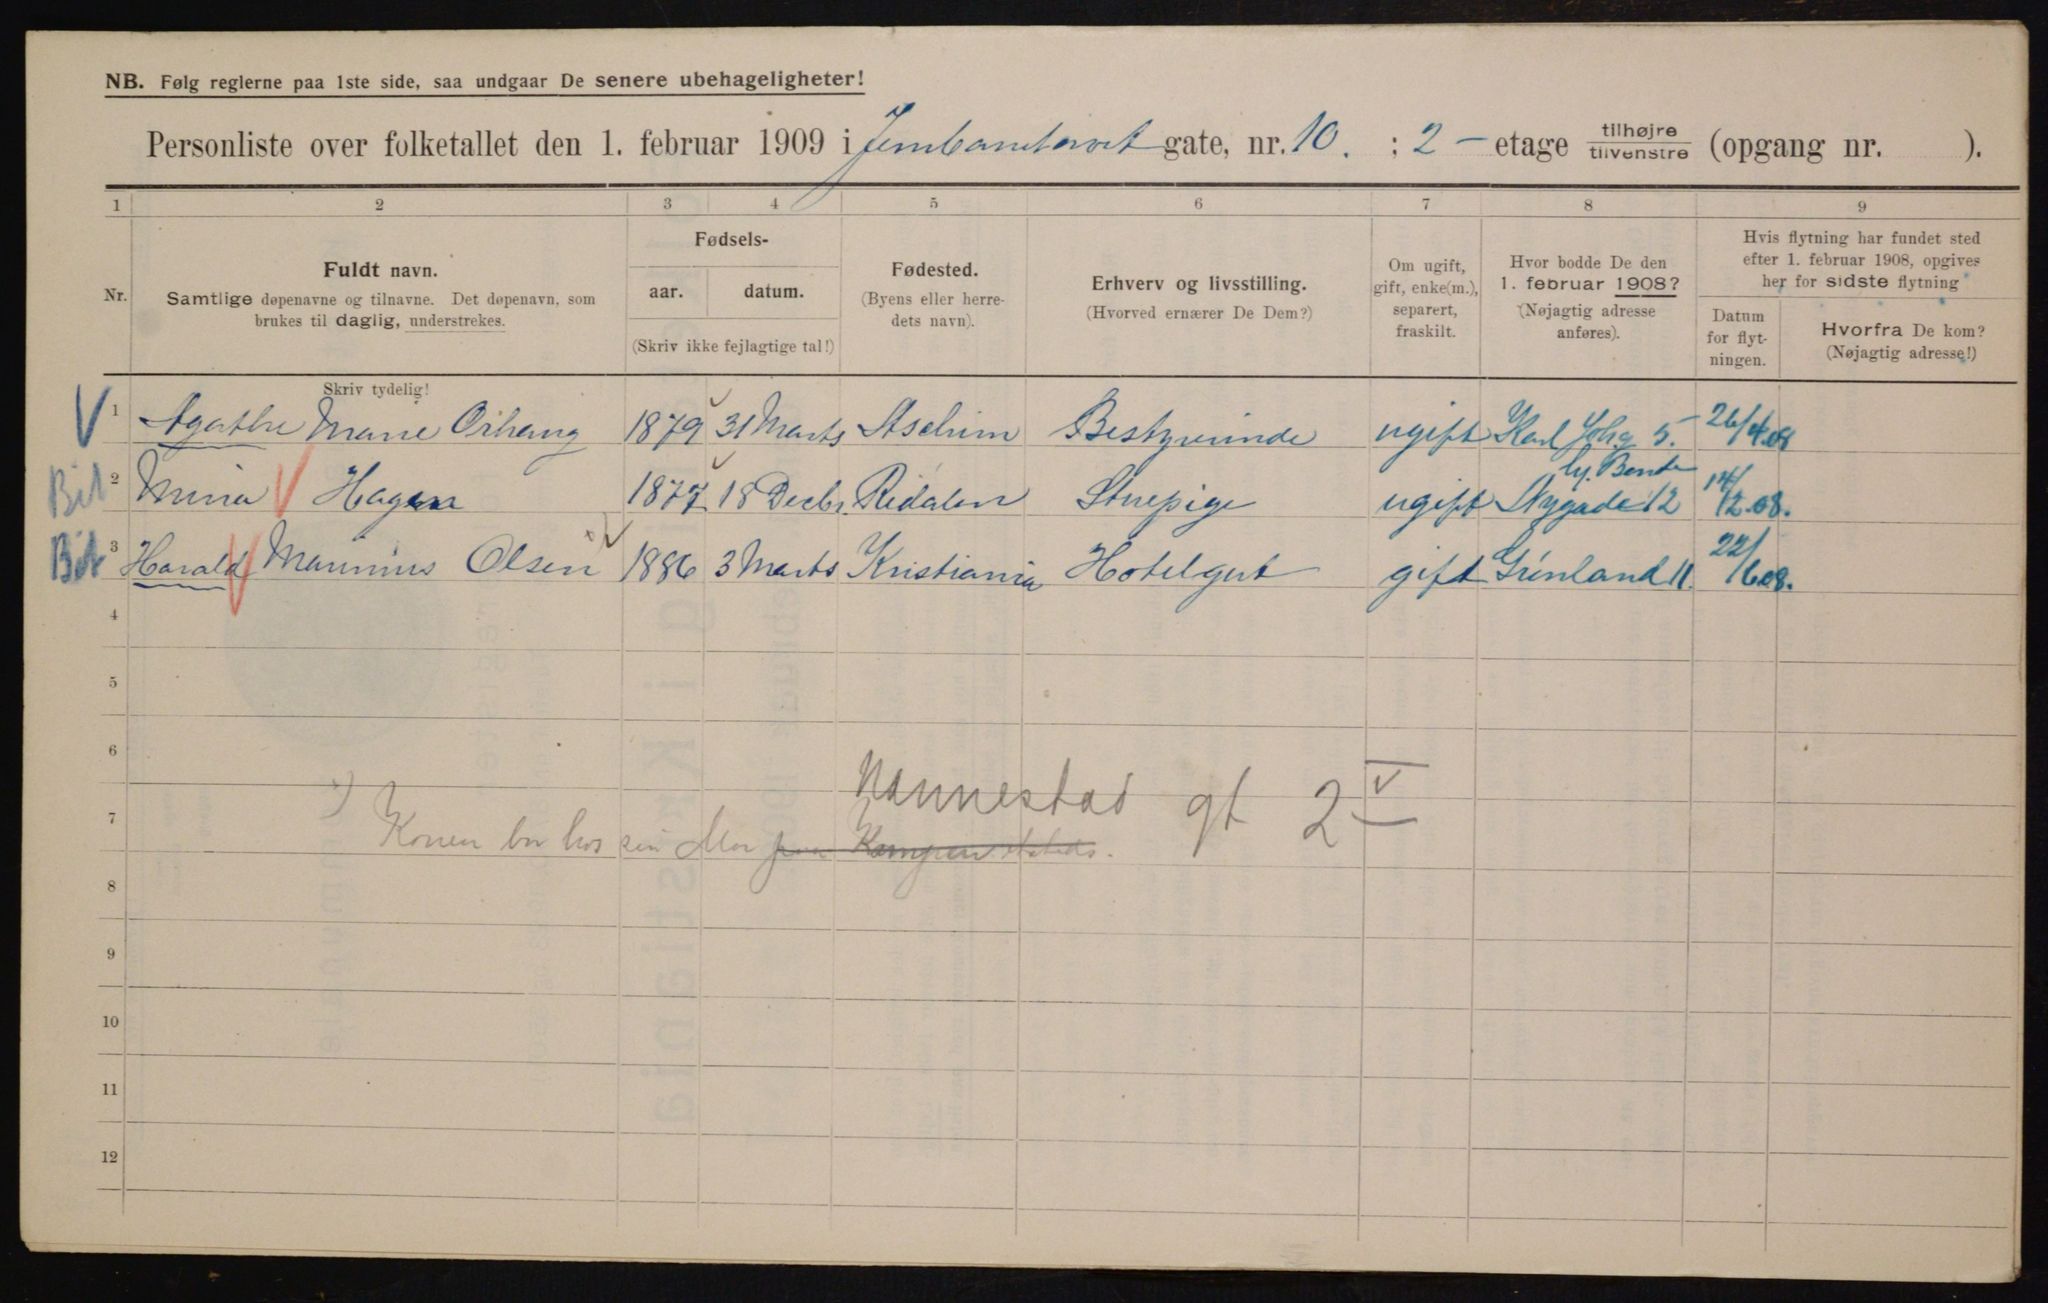 NB. Følg reglerne paa 1ste side, saa undgaar De senere ubehageligheter!
Personliste over folketallet den 1. februar 1909 i Jernbanetorvet gate, nr. 10. ; 2 - etage tilhøjre tilvenstre (opgang nr. ).
1 2 3 4 5 6 7 8 9
Nr.
Fuldt navn.
Samtlige døpenavne og tilnavne. Det døpenavn, som
brukes til daglig, understrekes.
Skriv tydelig!
Fødsels-
aar. datum.
(Skriv ikke fejlagtige tal!)
Fødested.
(Byens eller herre-
dets navn).
Erhverv og livsstilling.
(Hvorved ernærer De Dem?)
Om ugift,
gift, enke(m.),
separert,
fraskilt.
Hvor bodde De den
1. februar 1908?
(Nøjagtig adresse
anføres).
Hvis flytning har fundet sted
efter 1. februar 1908, opgives
her for sidste flytning
Datum
for flyt-
ningen.
Hvorfra De kom?
(Nøjagtig adresse!)
V 1 Agathe Marie 1879 31 Marts Aschim Bestyrerinde ugift Karl Johg 5. 26/4.08
Bil 2 Mina V Hagen 1877 18 Decbr. Ridalen Stuepige ugift Nygade 12 14/12.08.
3 Harald V Marinius Olsen 1886 3 Marts Kristiania Hotelgut gift Grünland 11. 22/6.08.
4
5
6
Nannestad gt 2 V
7
Konen bor hos sin Mor paa Kampen
8
9
10
11
12